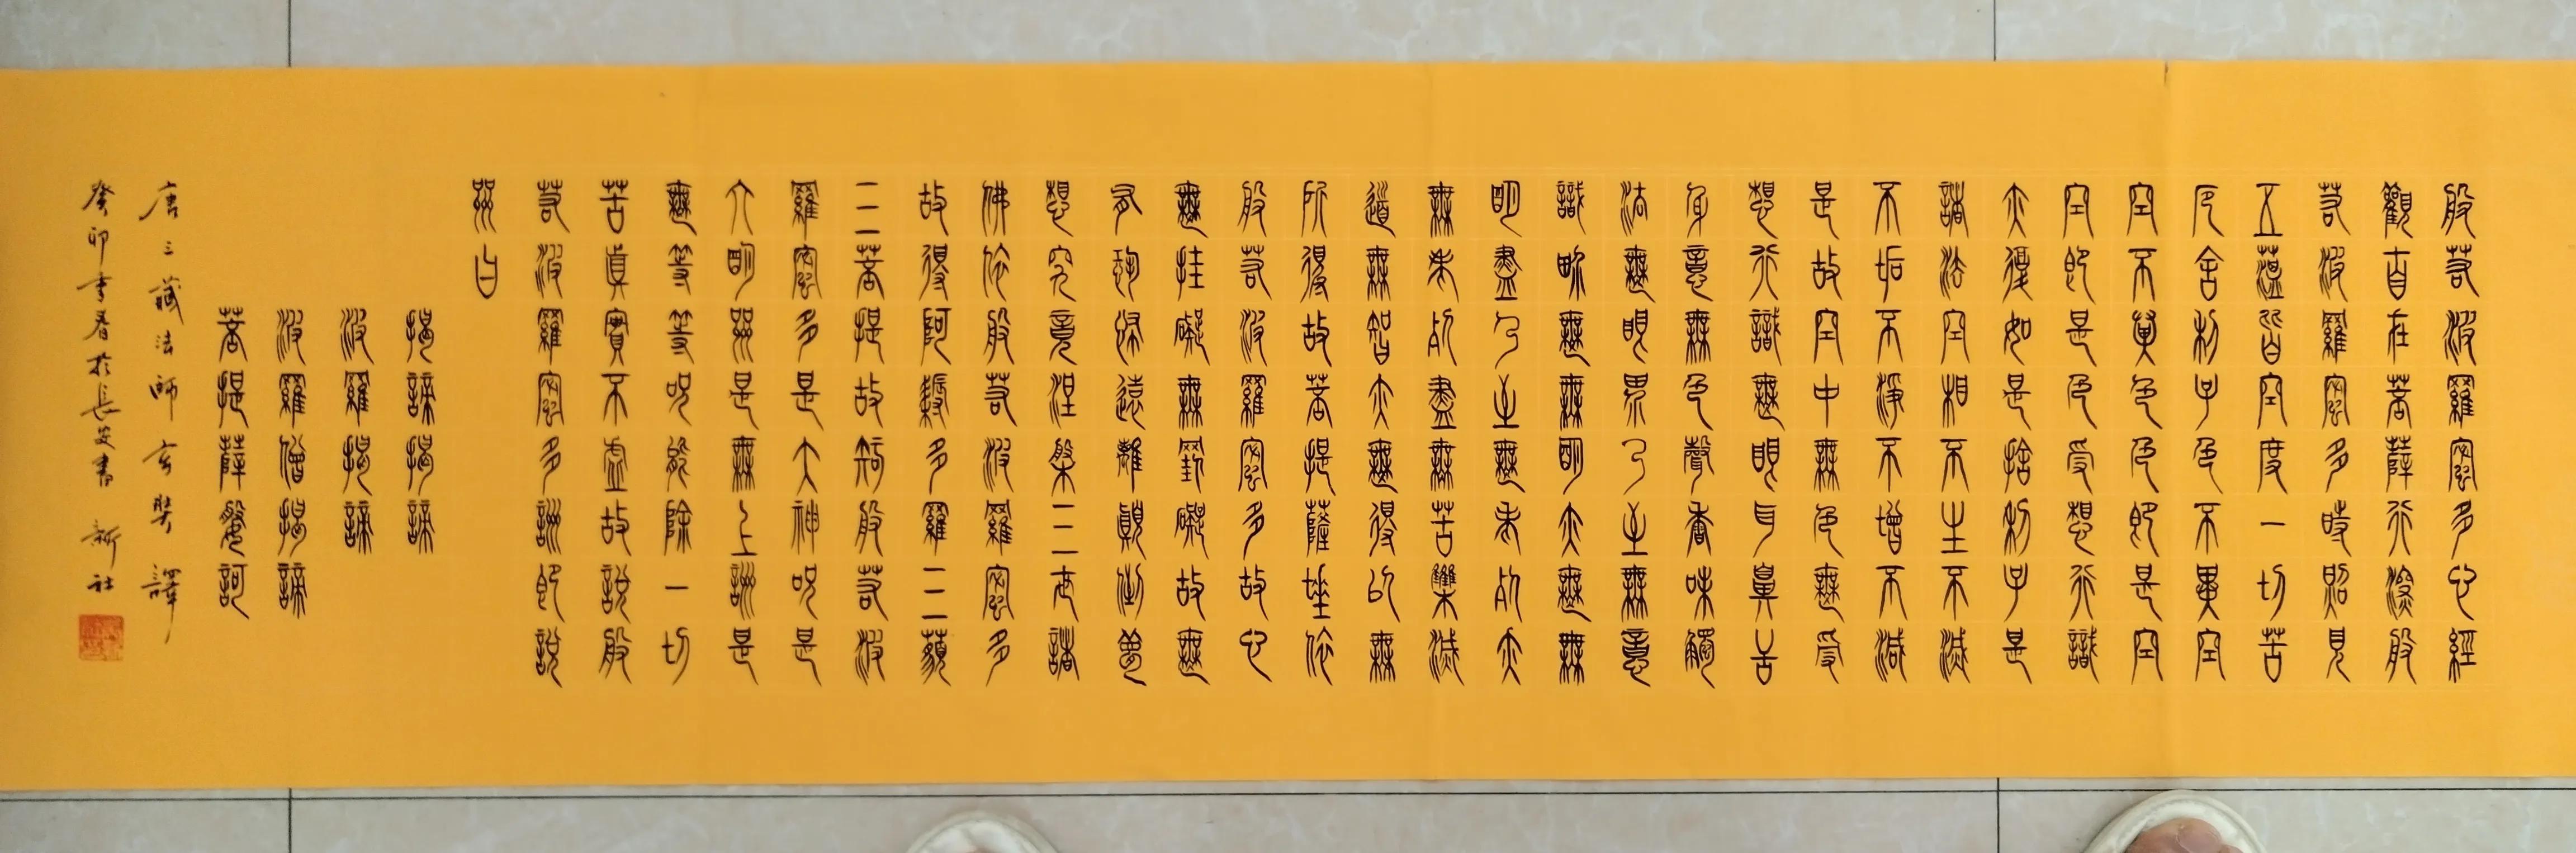 般若波羅蜜多心經
觀自在菩薩行深般
若波羅蜜多時照見
五蘊皆空度一切苦
厄舍利子色不異空
空不異色色即是空
空即是色受想行識
亦復如是捨利子是
諸法空相不生不滅
不垢不淨不增不減
是故空中無色無受
想行識無眼耳鼻舌
身意無色聲香味觸
法無眼界乃至無意
識界無無明亦無無
明盡乃至無老死亦
無老死盡無苦集滅
道無智亦無得以無
所得故菩提薩埵依
般若波羅蜜多故心
無挂礙無罣礙故無
有恐怖遠離顛倒夢
想究竟涅槃三世諸
佛依般若波羅蜜多
故得阿耨多羅三藐
三菩提故知般若波
羅蜜多是大神咒是
大明咒是無上咒是
無等等咒能除一切
苦真實不虛故說般
若波羅蜜多咒即說
咒曰
揭諦揭諦
波羅揭諦
波羅僧揭諦
菩提薩婆訶
唐三藏法師玄奘譯
癸卯季春於長安書 新社